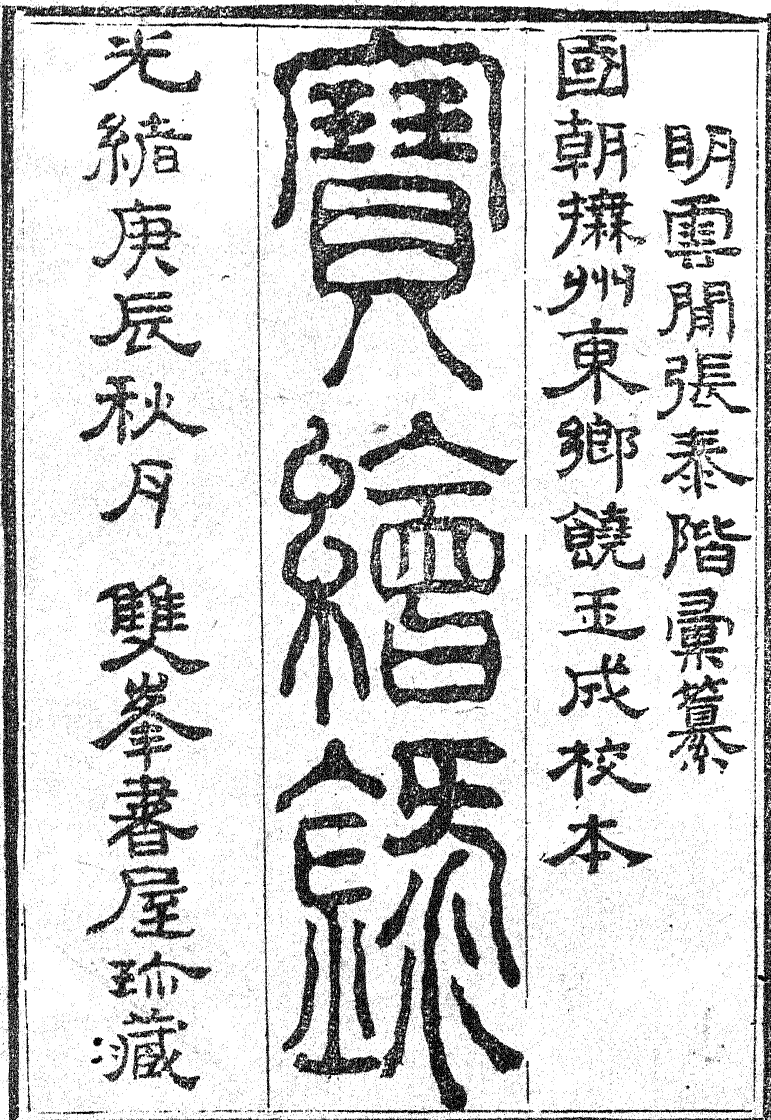 明雲間張泰階彙纂
國朝撫州東鄉饒玉成校本
寶繪錄
光緒庚辰秋月 雙峯書屋珍藏